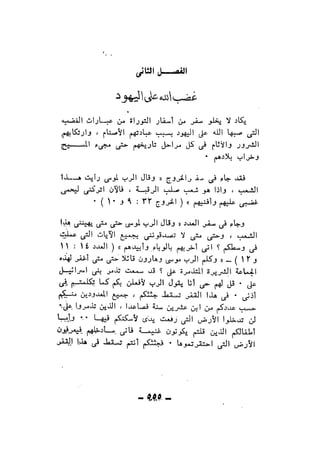 الفصــل الثانى
غضب الله على اليهود
يكاد لا يخلو سفر من أسفار التوراة من عبــارات الغضب
التى صبها الله على اليهود بسبب عبادتهم الأصنام ، وارتكابهم
الشرور والآثام فى كل مراحل تاريخهم حتى مجىء المســيح
وخراب بلادهم ٠
فقد جاء فى سفر الخروج « وقال الرب لموسى رأيت هــذا
الشعب ، واذا هو شعب صلب الرقبــة ، فالآن اتركنى ليحمى
غضبى عليهم وأفنيهم » ( الخروج ٣٢ : ٩ و ١٠ ) ٠
وجاء فى سفر العدد « وقال الرب لموسى حتى متى يهيننى هذا
الشعب ، وحتى متى لا تصدقوننى بجميع الآيات التى عملت
فى وسطكم ؟ انى أضربهم بالوباء وأبيدهم » ( العدد ١٤ : ١١
و ١٢ ) ــ « وكلم الرب موسى وهارون قائلا حتى متى أغفر لهذه
الجماعة الشريرة المتذمرة على ؟ قد سمعت تذمر بنى اسرائيــل
على ٠ قل لهم حى أنا يقول الرب لأفعلن بكم كما تكلمتــم فى
أذنى ٠ فى هذا القفر تسقط جثثكم ، جميع المعدودين منــكم
حسب عددكم من ابن عشرين سنة فصاعدا ، الذين تذمروا على٠
لن تدخلوا الأرض التى رفعت يدى لأسكنكم فيهــا ٠٠ وأمــا
أطفالكم الذين قلتم يكونون غنيمــة فانى ســأدخلهم فيعرفون
الأرض التى احتقرتموها ٠ فجثثكم أنتم تسقط فى هذا القفر